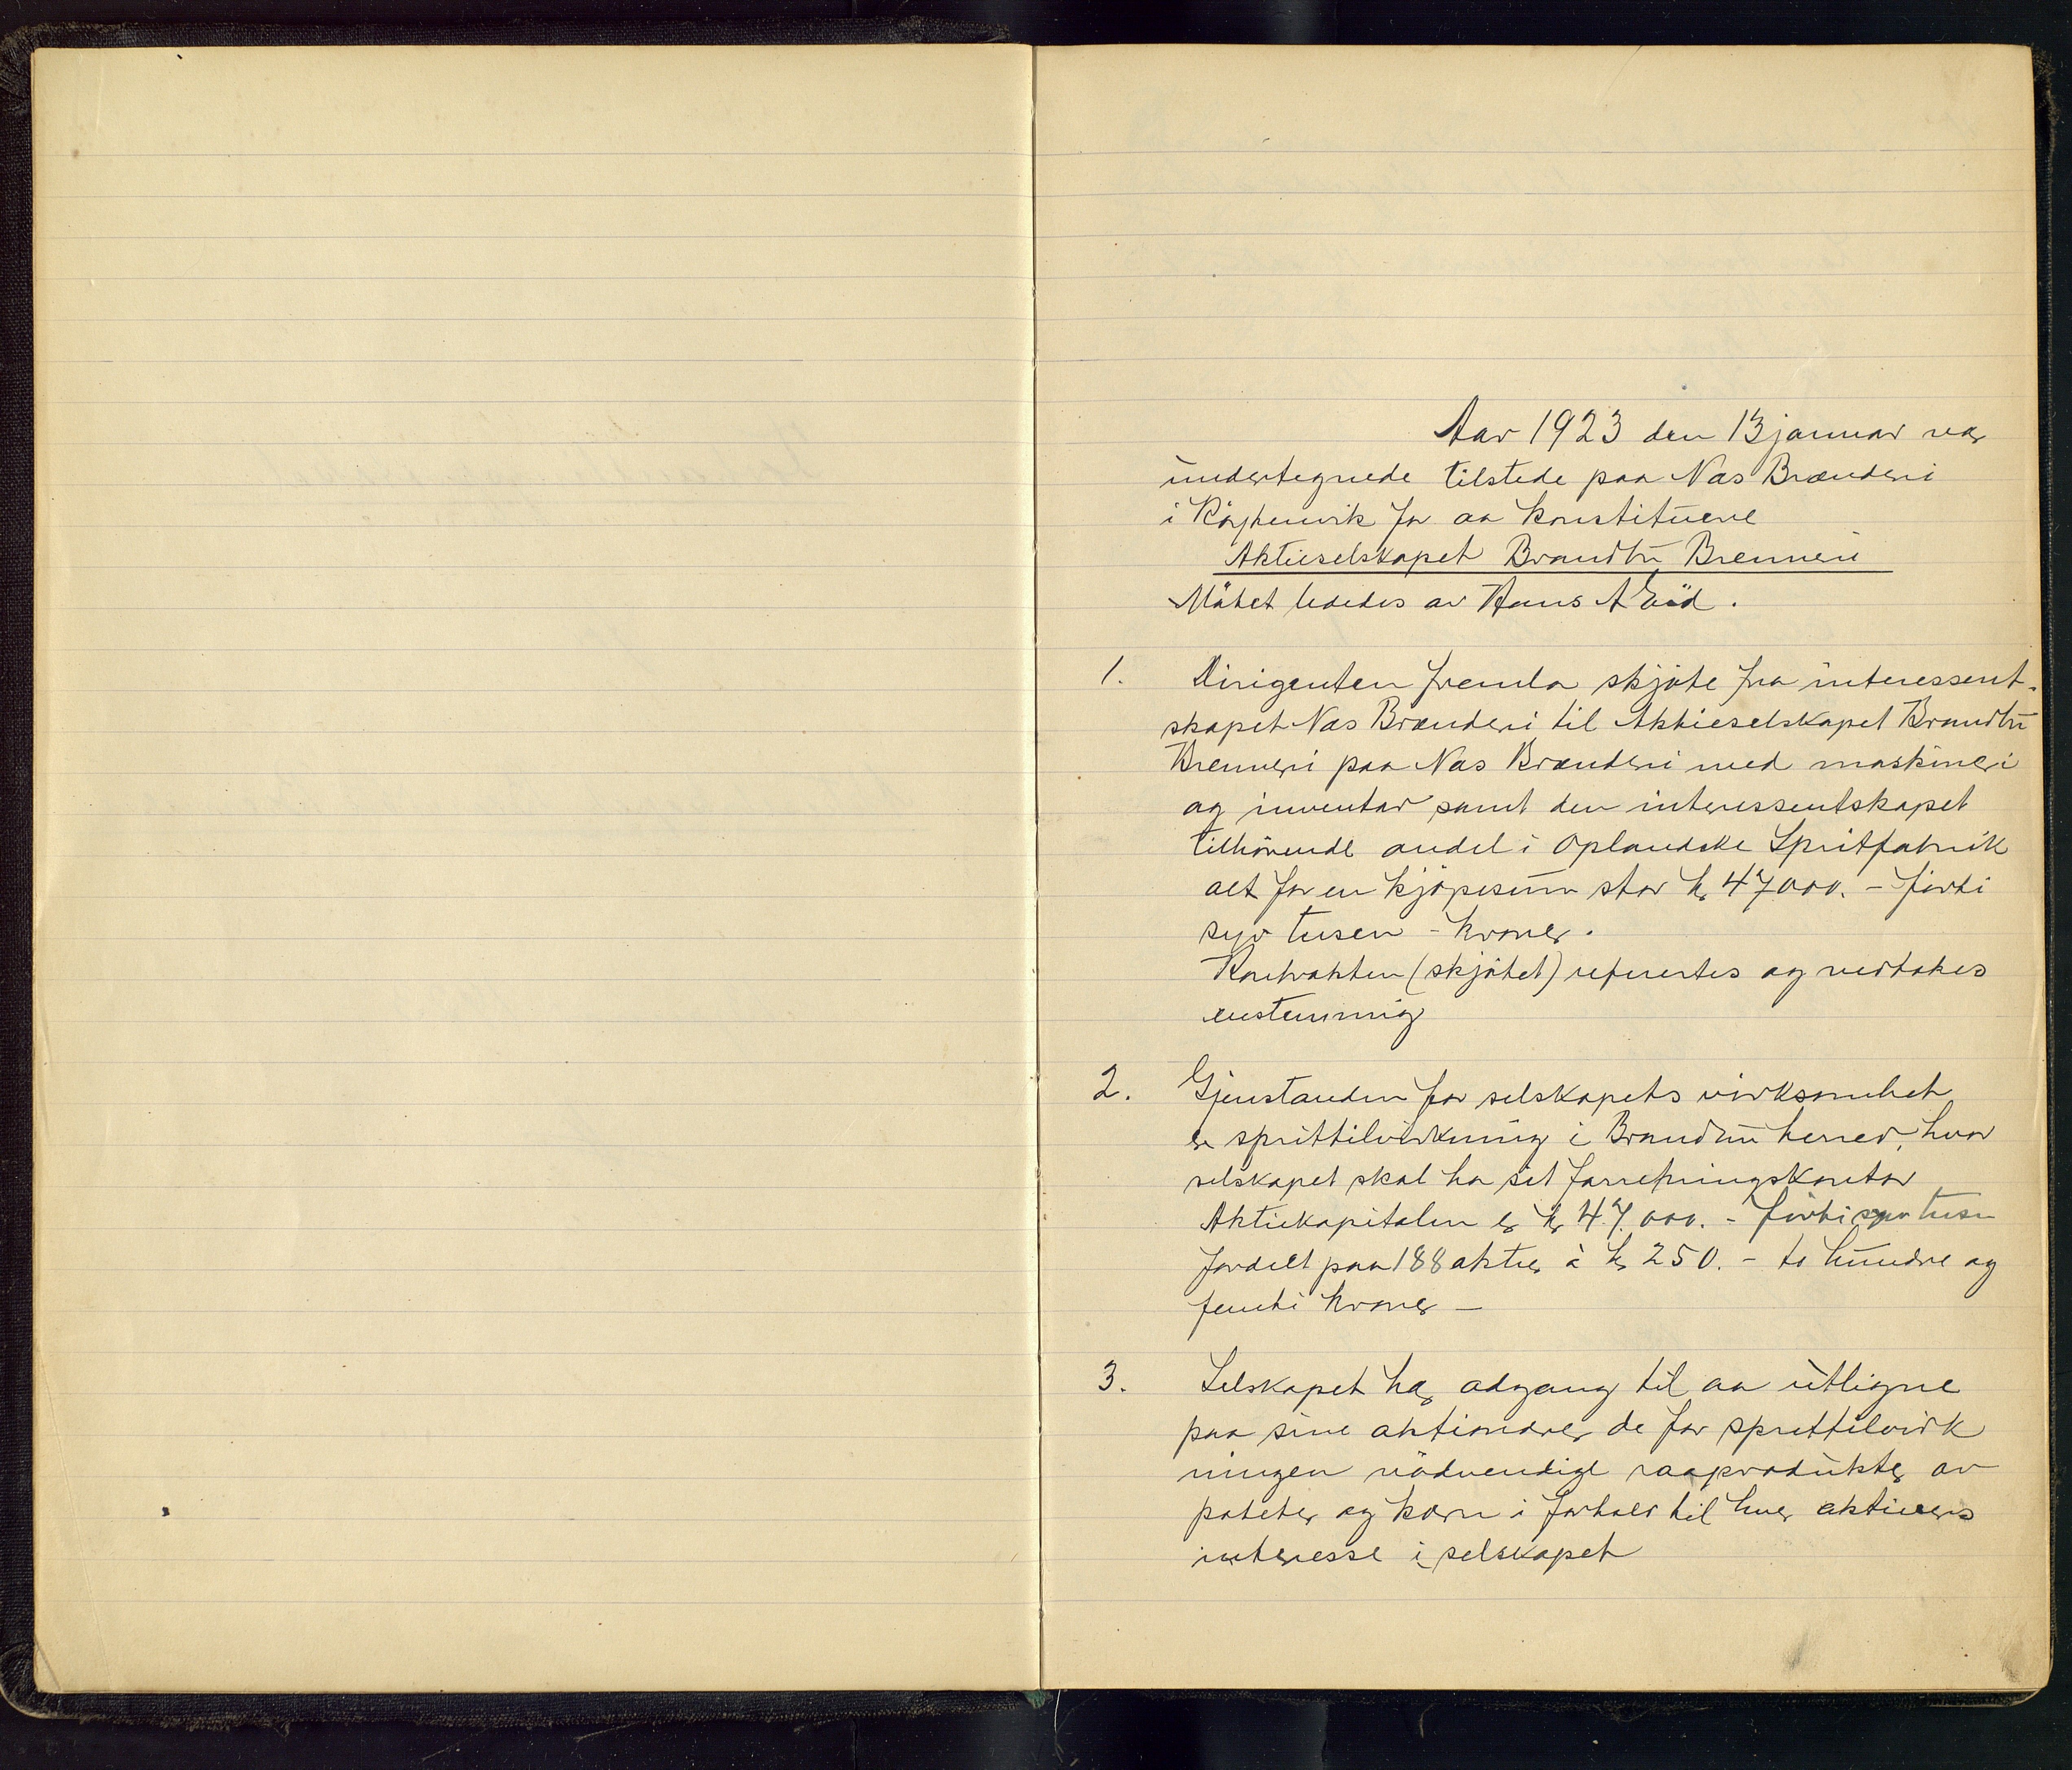 Aar 1923 den 13 januar var
undertegnede tilstede paa Næs Brænderi
i Røykenvik for aa konstituere
Aktieselskapet Brandbu Brenneri
Møtet lededes av Hans A Eid.
1. Dirigenten fremla skjøte fra interessent-
skapet Næs Brænderi til Aktieselskapet Brandbu
Brenneri paa Næs Brænderi med maskineri
og inventar samt den interessentskapet
tilhørende andel i Oplandske Spritfabrik
alt for en kjøpesum stor kr 47000.- førti
syv tusen - kroner.
Kontrakten (skjøtet) refertes og vedtokes
enstemmig
2. Gjenstanden for selskapets virksomhet
er sprittilvirkning i Brandbu herred, hvor
selskapet skal ha sit forretningskontor
Aktiekapitalen er kr 47.000.- førti syv tusen
fordelt paa 188 aktier à kr 250.- to hundre og
femti kroner —
3. Selskapet har adgang til aa utligne
paa sine aktionærer de for sprittilvirk
ningen nødvendige raaprodukter av
poteter og korn i forhold til hver aktieeiers
interesse i selskapet